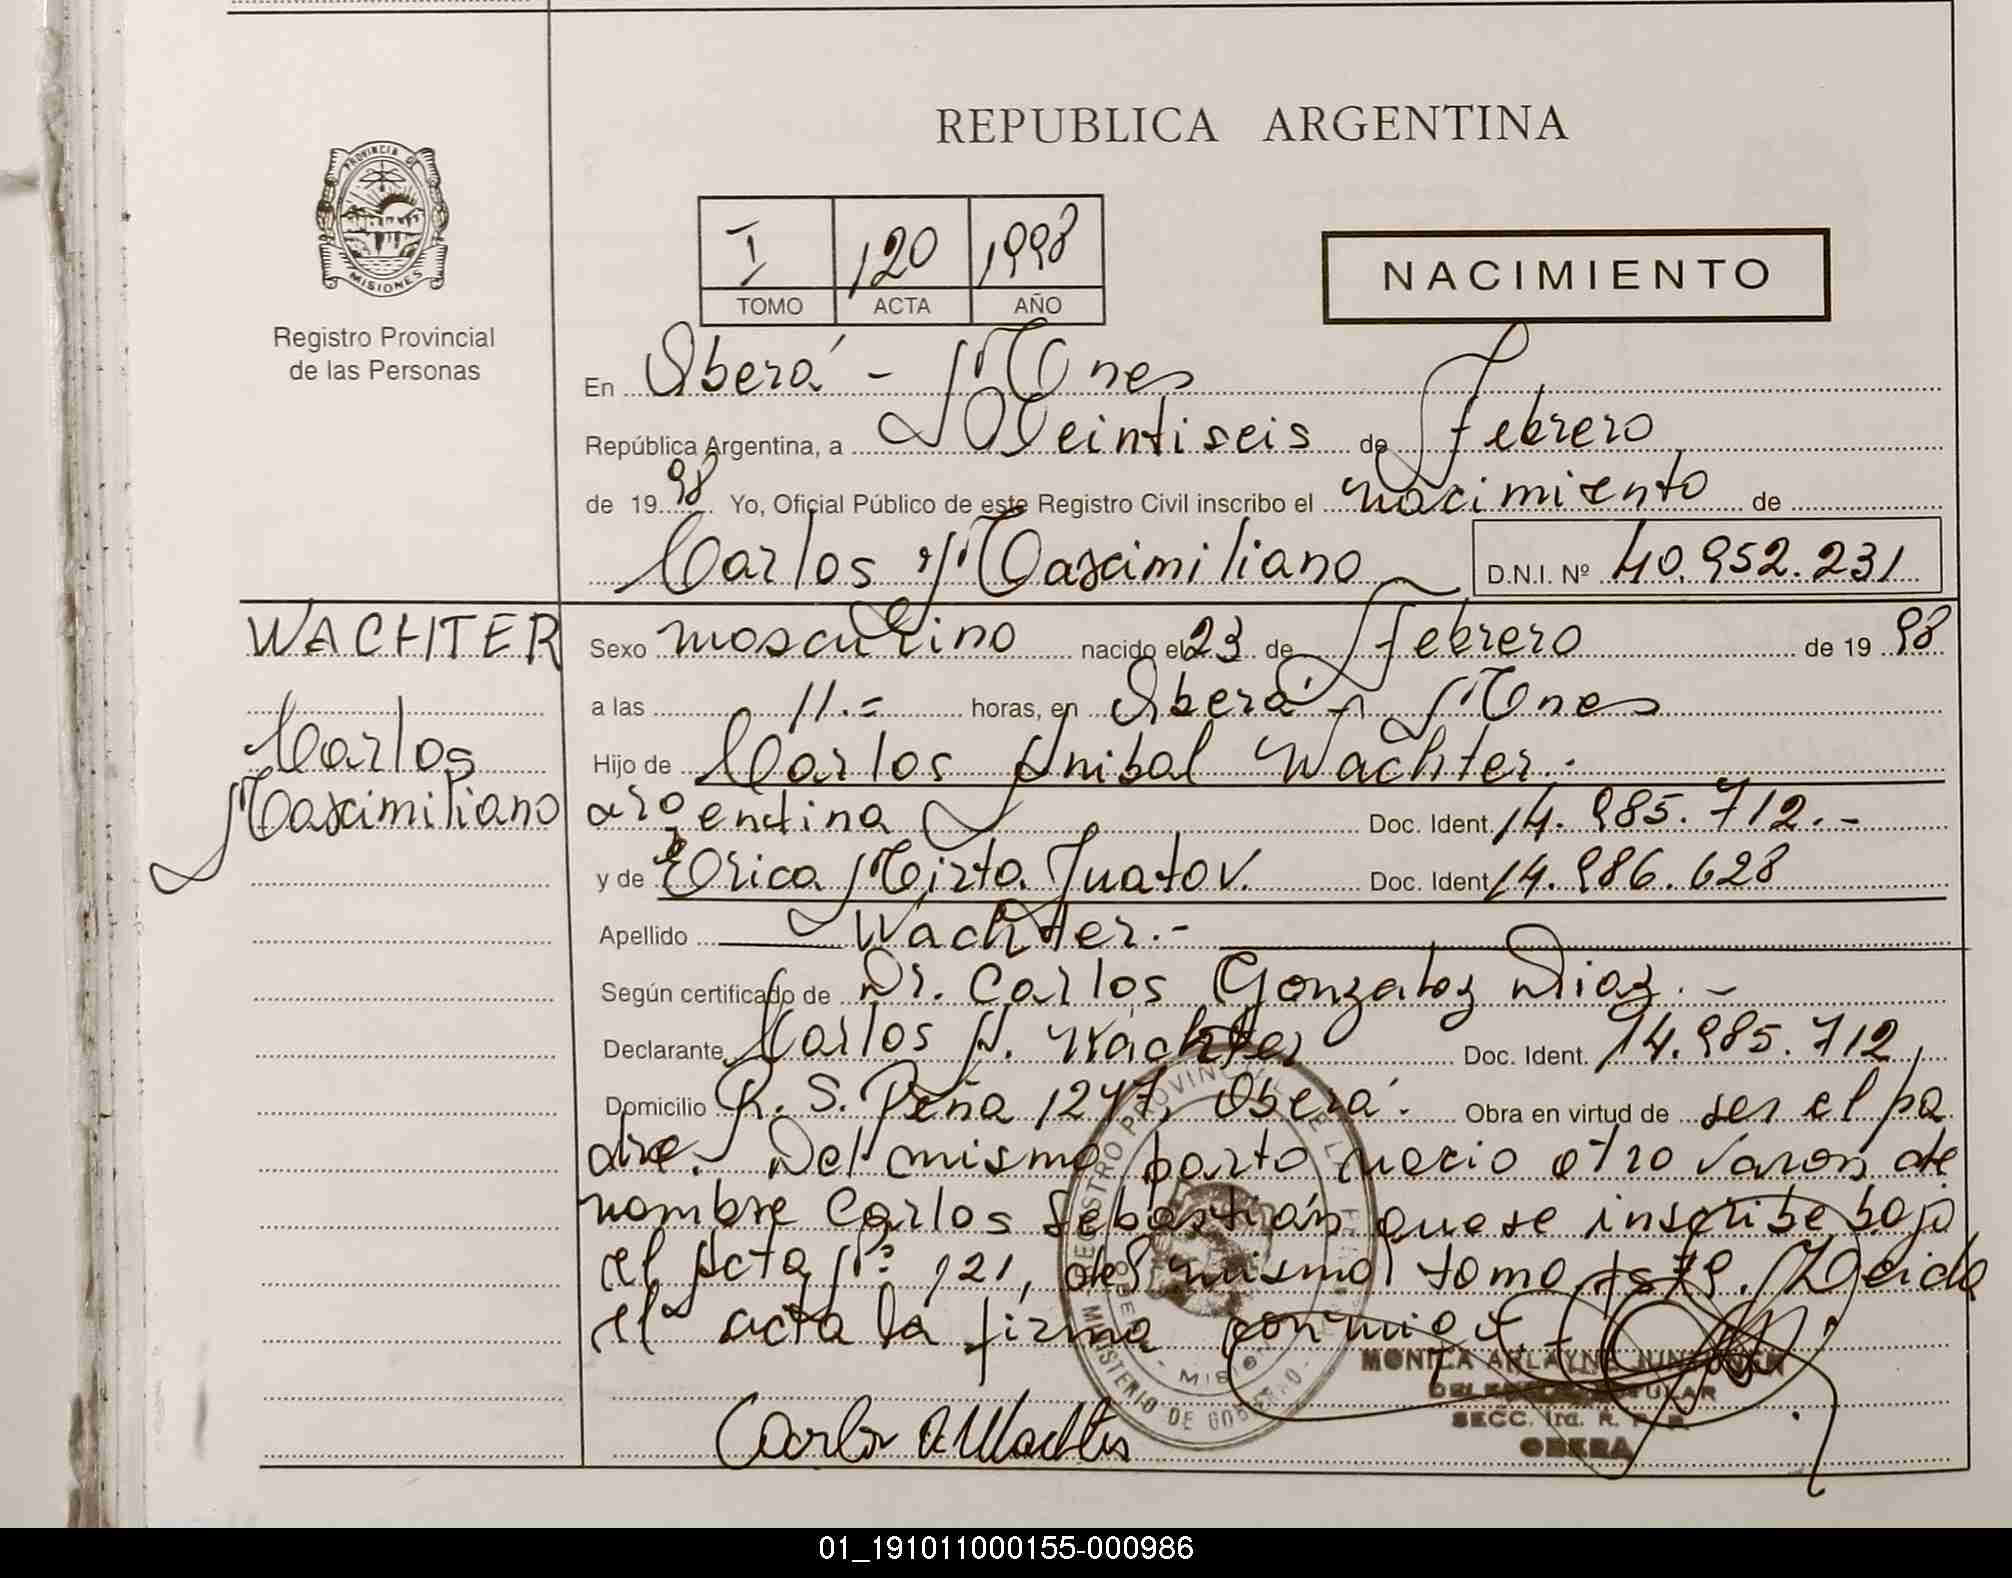 REPUBLICA ARGENTINA
PROVINCIA DE
MISIONES
Registro Provincial
de las Personas
I 120 1998
TOMO ACTA AÑO
NACIMIENTO
En Oberá - Mnes
República Argentina, a Veintiseis de Febrero
de 1998 Yo, Oficial Público de este Registro Civil inscribo el nacimiento de
Carlos Maximiliano D.N.I. Nº 40.952.231
WACHTER
Carlos
Maximiliano
Sexo masculino nacido el 23 de Febrero de 1998
a las 11.= horas, en Oberá - Mnes
Hijo de Carlos Anibal Wachter.-
argentina Doc. Ident. 14.985.712.-
y de Erica Mirta Doc. Ident. 14.986.628
Apellido Wachter.-
Según certificado de Dr. Carlos Gonzalez Diaz.-
Declarante Carlos A. Wachter Doc. Ident. 14.985.712,
Domicilio R. S. Peña 1247, Oberá. Obra en virtud de ser el pa
dre. Del mismo parto nacio otro varon de
nombre Carlos Sebastián que se inscribe bajo
el Acta Nº 121, del mismo tomo, Leida
el acta la firma conmigo.-
Carlos A. Wachter
REGISTRO PROVINCIAL DE LAS PERSONAS
MINISTERIO DE GOBIERNO
MONICA ARLAYNE
DELEGADA TITULAR
SECC. 1ra. R. P. P.
OBERA
01_191011000155-000986